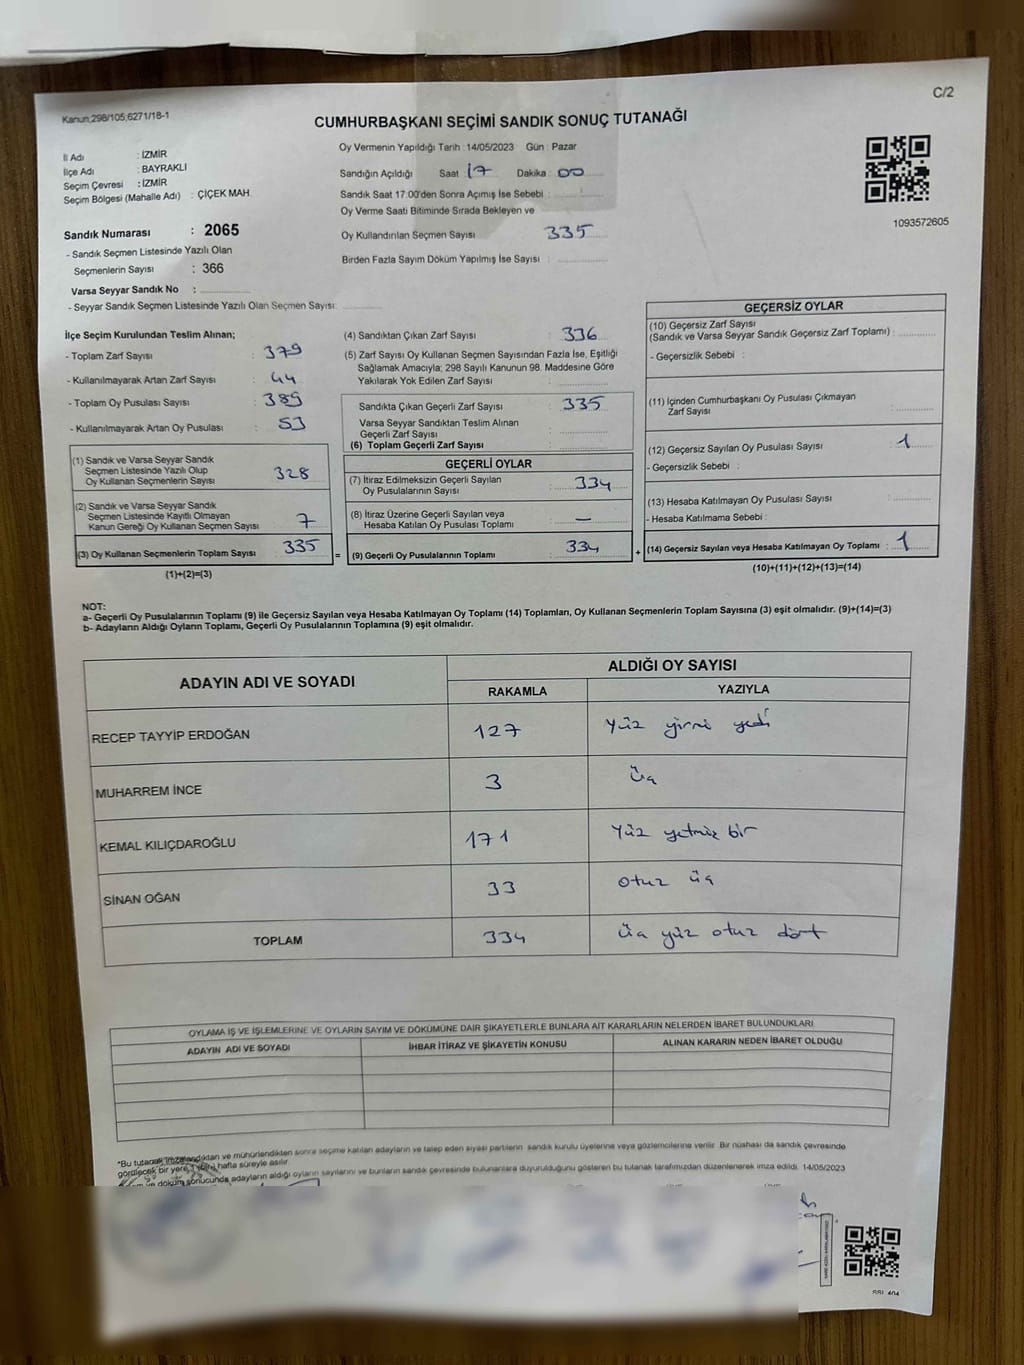 C/2
Kanun;298/105;6271/18-1
CUMHURBAŞKANI SEÇİMİ SANDIK SONUÇ TUTANAĞI
İl Adı : İZMİR
İlçe Adı : BAYRAKLI
Seçim Çevresi : İZMİR
Seçim Bölgesi (Mahalle Adı) : ÇİÇEK MAH.
Sandık Numarası : 2065
- Sandık Seçmen Listesinde Yazılı Olan
Seçmenlerin Sayısı : 366
Varsa Seyyar Sandık No :
- Seyyar Sandık Seçmen Listesinde Yazılı Olan Seçmen Sayısı:
Oy Vermenin Yapıldığı Tarih : 14/05/2023 Gün : Pazar
Sandığın Açıldığı Saat 17 Dakika : 00
Sandık Saat 17.00'den Sonra Açımış İse Sebebi :
Oy Verme Saati Bitiminde Sırada Bekleyen ve
Oy Kullandırılan Seçmen Sayısı 335
Birden Fazla Sayım Döküm Yapılmış İse Sayısı :
1093572605
İlçe Seçim Kurulundan Teslim Alınan;
- Toplam Zarf Sayısı : 379
- Kullanılmayarak Artan Zarf Sayısı : 44
- Toplam Oy Pusulası Sayısı : 389
- Kullanılmayarak Artan Oy Pusulası : 53
(1) Sandık ve Varsa Seyyar Sandık
Seçmen Listesinde Yazılı Olup
Oy Kullanan Seçmenlerin Sayısı : 328
(2) Sandık ve Varsa Seyyar Sandık
Seçmen Listesinde Kayıtlı Olmayan
Kanun Gereği Oy Kullanan Seçmen Sayısı : 7
(3) Oy Kullanan Seçmenlerin Toplam Sayısı : 335
(1)+(2)=(3)
(4) Sandıktan Çıkan Zarf Sayısı : 336
(5) Zarf Sayısı Oy Kullanan Seçmen Sayısından Fazla İse, Eşitliği
Sağlamak Amacıyla; 298 Sayılı Kanunun 98. Maddesine Göre
Yakılarak Yok Edilen Zarf Sayısı :
Sandıkta Çıkan Geçerli Zarf Sayısı : 335
Varsa Seyyar Sandıktan Teslim Alınan
Geçerli Zarf Sayısı :
(6) Toplam Geçerli Zarf Sayısı :
GEÇERLİ OYLAR
(7) İtiraz Edilmeksizin Geçerli Sayılan
Oy Pusulalarının Sayısı : 334
(8) İtiraz Üzerine Geçerli Sayılan veya
Hesaba Katılan Oy Pusulası Toplamı : —
= (9) Geçerli Oy Pusulalarının Toplamı : 334
GEÇERSİZ OYLAR
(10) Geçersiz Zarf Sayısı
(Sandık ve Varsa Seyyar Sandık Geçersiz Zarf Toplamı) :
- Geçersizlik Sebebi :
(11) İçinden Cumhurbaşkanı Oy Pusulası Çıkmayan
Zarf Sayısı :
(12) Geçersiz Sayılan Oy Pusulası Sayısı : 1
- Geçersizlik Sebebi :
(13) Hesaba Katılmayan Oy Pusulası Sayısı :
- Hesaba Katılmama Sebebi :
+ (14) Geçersiz Sayılan veya Hesaba Katılmayan Oy Toplamı : 1
(10)+(11)+(12)+(13)=(14)
NOT:
a- Geçerli Oy Pusulalarının Toplamı (9) ile Geçersiz Sayılan veya Hesaba Katılmayan Oy Toplamı (14) Toplamları, Oy Kullanan Seçmenlerin Toplam Sayısına (3) eşit olmalıdır. (9)+(14)=(3)
b- Adayların Aldığı Oyların Toplamı, Geçerli Oy Pusulalarının Toplamına (9) eşit olmalıdır.
ADAYIN ADI VE SOYADI ALDIĞI OY SAYISI
RAKAMLA YAZIYLA
RECEP TAYYİP ERDOĞAN 127 Yüz yirmi yedi
MUHARREM İNCE 3 üç
KEMAL KILIÇDAROĞLU 171 Yüz yetmiş bir
SİNAN OĞAN 33 otuz üç
TOPLAM 334 üç yüz otuz dört
OYLAMA İŞ VE İŞLEMLERİNE VE OYLARIN SAYIM VE DÖKÜMÜNE DAİR ŞİKAYETLERLE BUNLARA AİT KARARLARIN NELERDEN İBARET BULUNDUKLARI
ADAYIN ADI VE SOYADI İHBAR İTİRAZ VE ŞİKAYETİN KONUSU ALINAN KARARIN NEDEN İBARET OLDUĞU
*Bu tutanak imzalandıktan ve mühürlendikten sonra seçime katılan adayların ve talep eden siyasi partilerin sandık kurulu üyelerine veya gözlemcilerine verilir. Bir nüshası da sandık çevresinde
görülecek bir yere 1 (bir) hafta süreyle asılır.
ve döküm sonucunda adayların aldığı oyların sayılarını ve bunların sandık çevresinde bulunanlara duyurulduğunu gösteren bu tutanak tarafımızdan düzenlenerek imza edildi. 14/05/2023